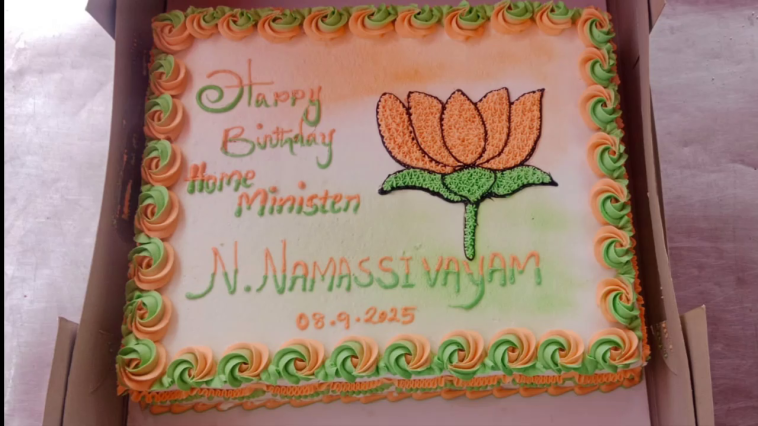 Happy
Birthday
Home
Minister
N. NAMASSIVAYAM
08.9.2025